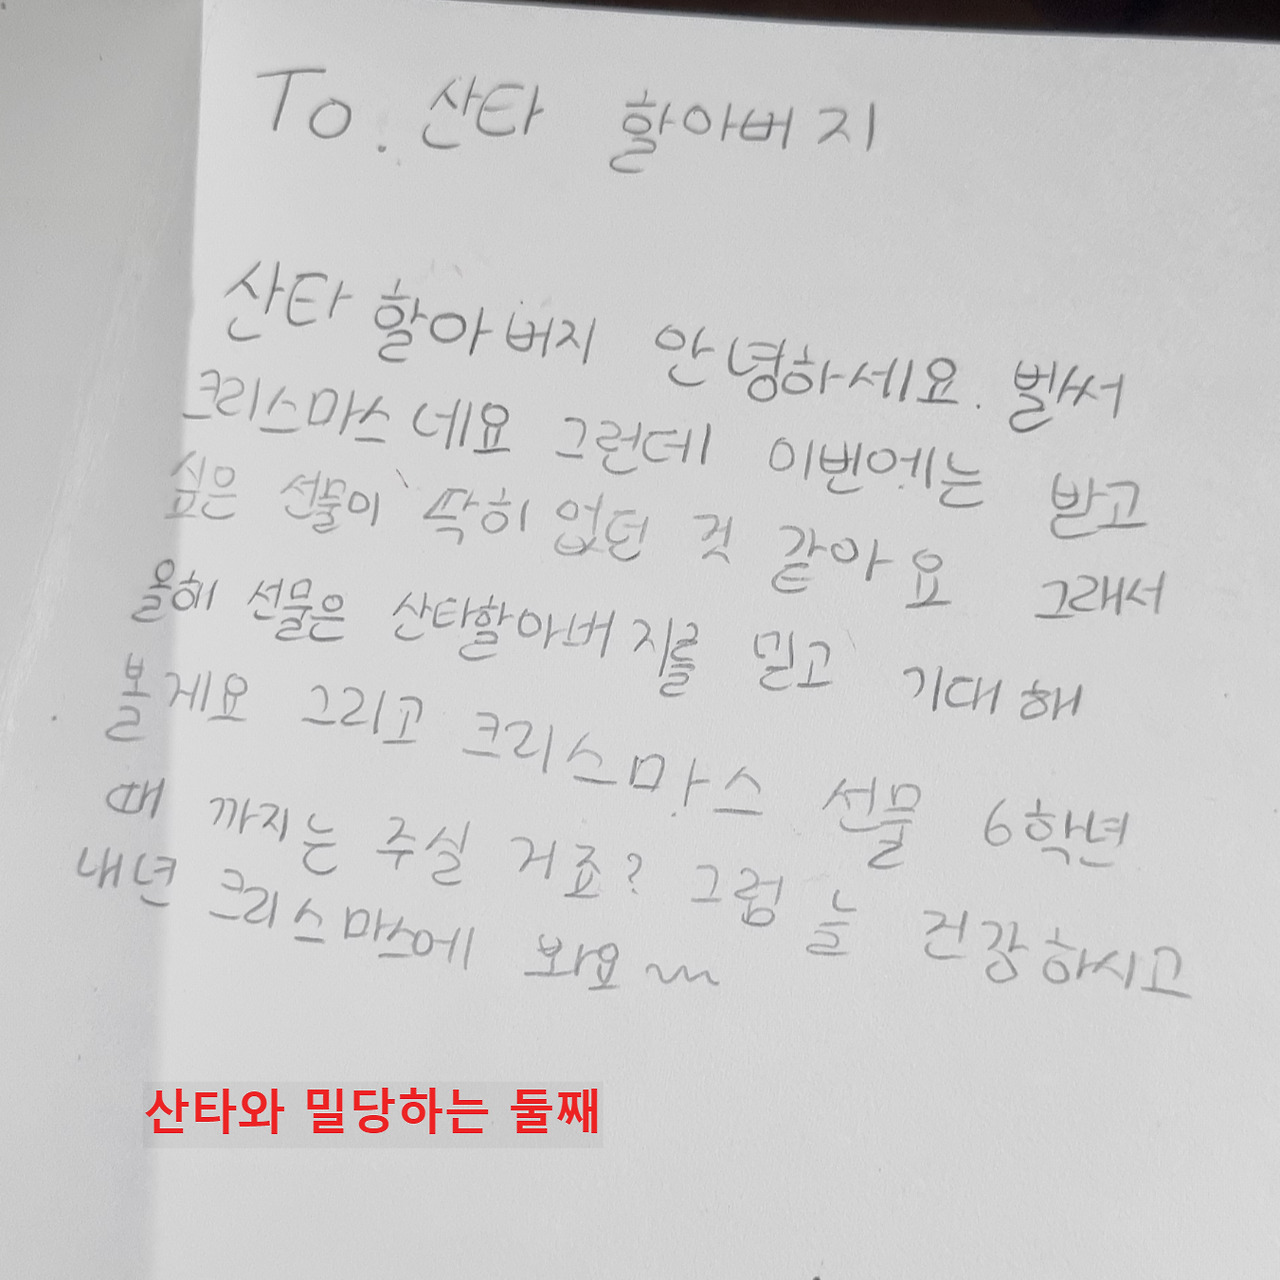 To. 산타 할아버지
산타 할아버지 안녕하세요. 벌써
크리스마스네요 그런데 이번에는 받고
싶은 선물이 딱히 없던 것 같아요 그래서
올해 선물은 산타할아버지를 믿고 기대해
볼게요 그리고 크리스마스 선물 6학년
때 까지는 주실 거죠? 그럼 늘 건강하시고
내년 크리스마스에 봐요~
산타와 밀당하는 둘째